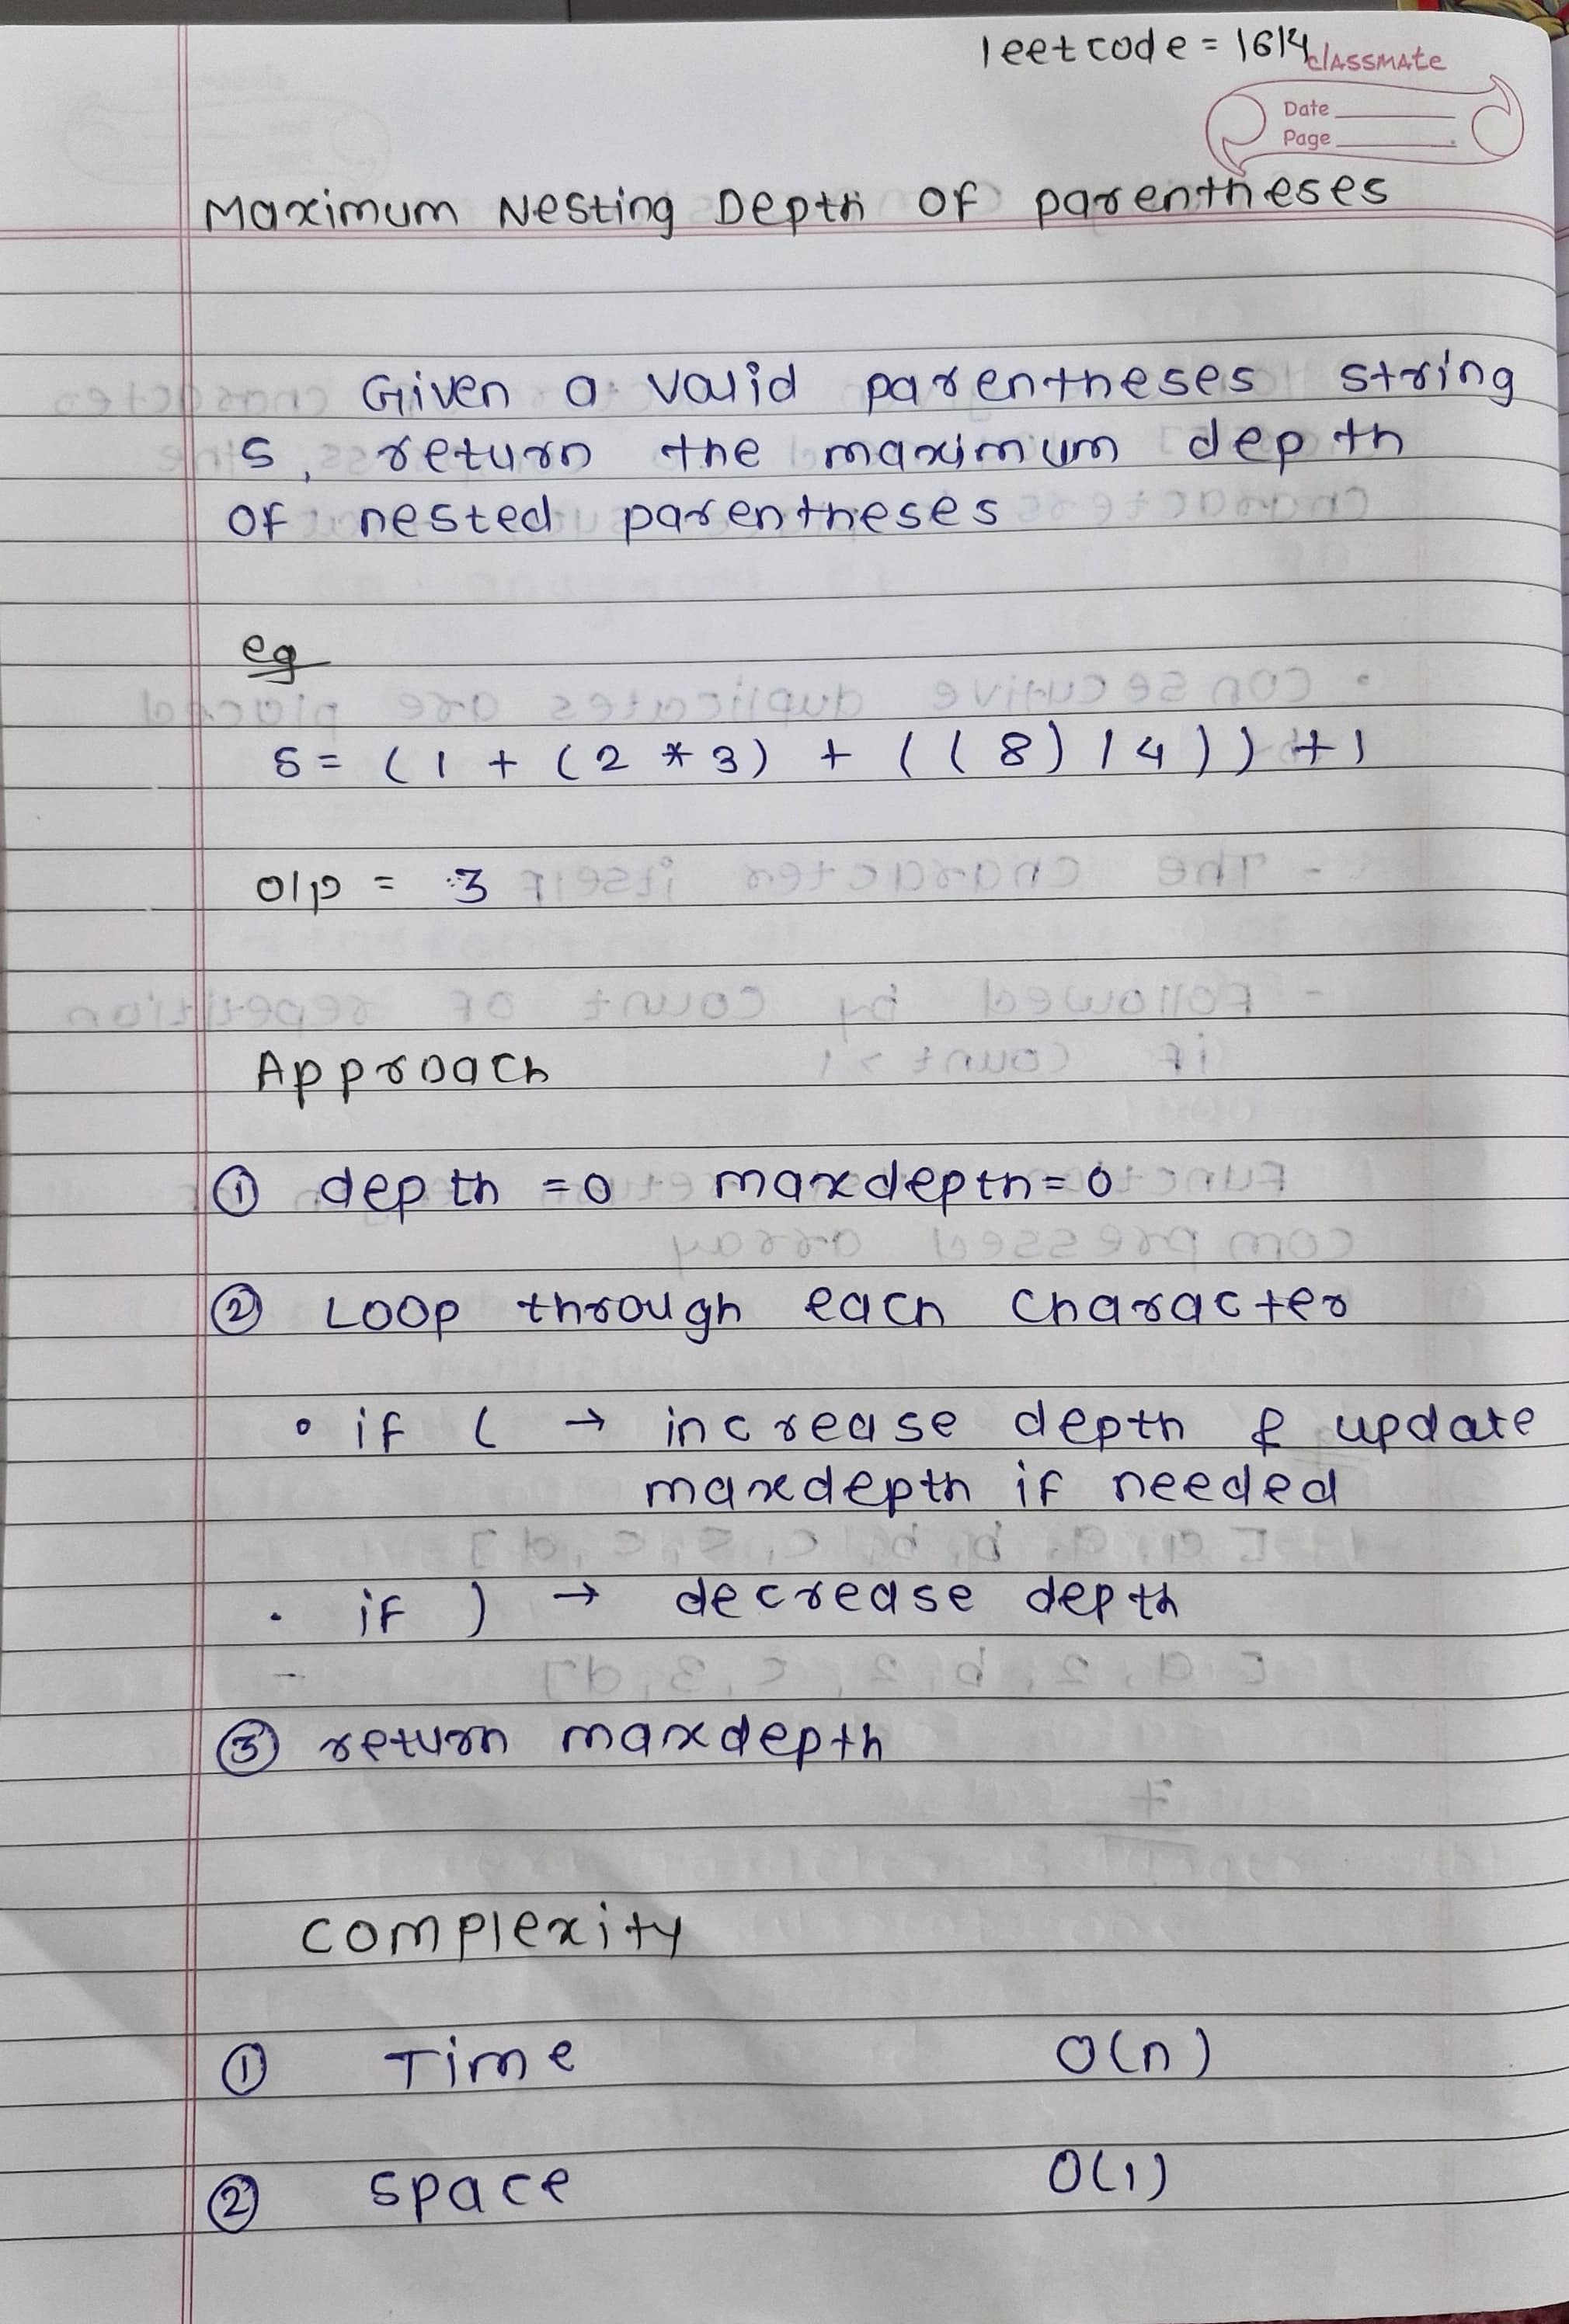 leetcode = 1614
classmate
Date
Page
Maximum Nesting Depth Of parentheses
Given a valid parentheses string
s, return the maximum depth
of nested parentheses
eg
s = (1 + (2 * 3) + ((8) / 4)) + 1
o/p = 3
Approach
① depth = 0 maxdepth = 0
② Loop through each character
• if ( → increase depth & update
maxdepth if needed
• if ) → decrease depth
③ return maxdepth
Complexity
① Time O(n)
② Space O(1)